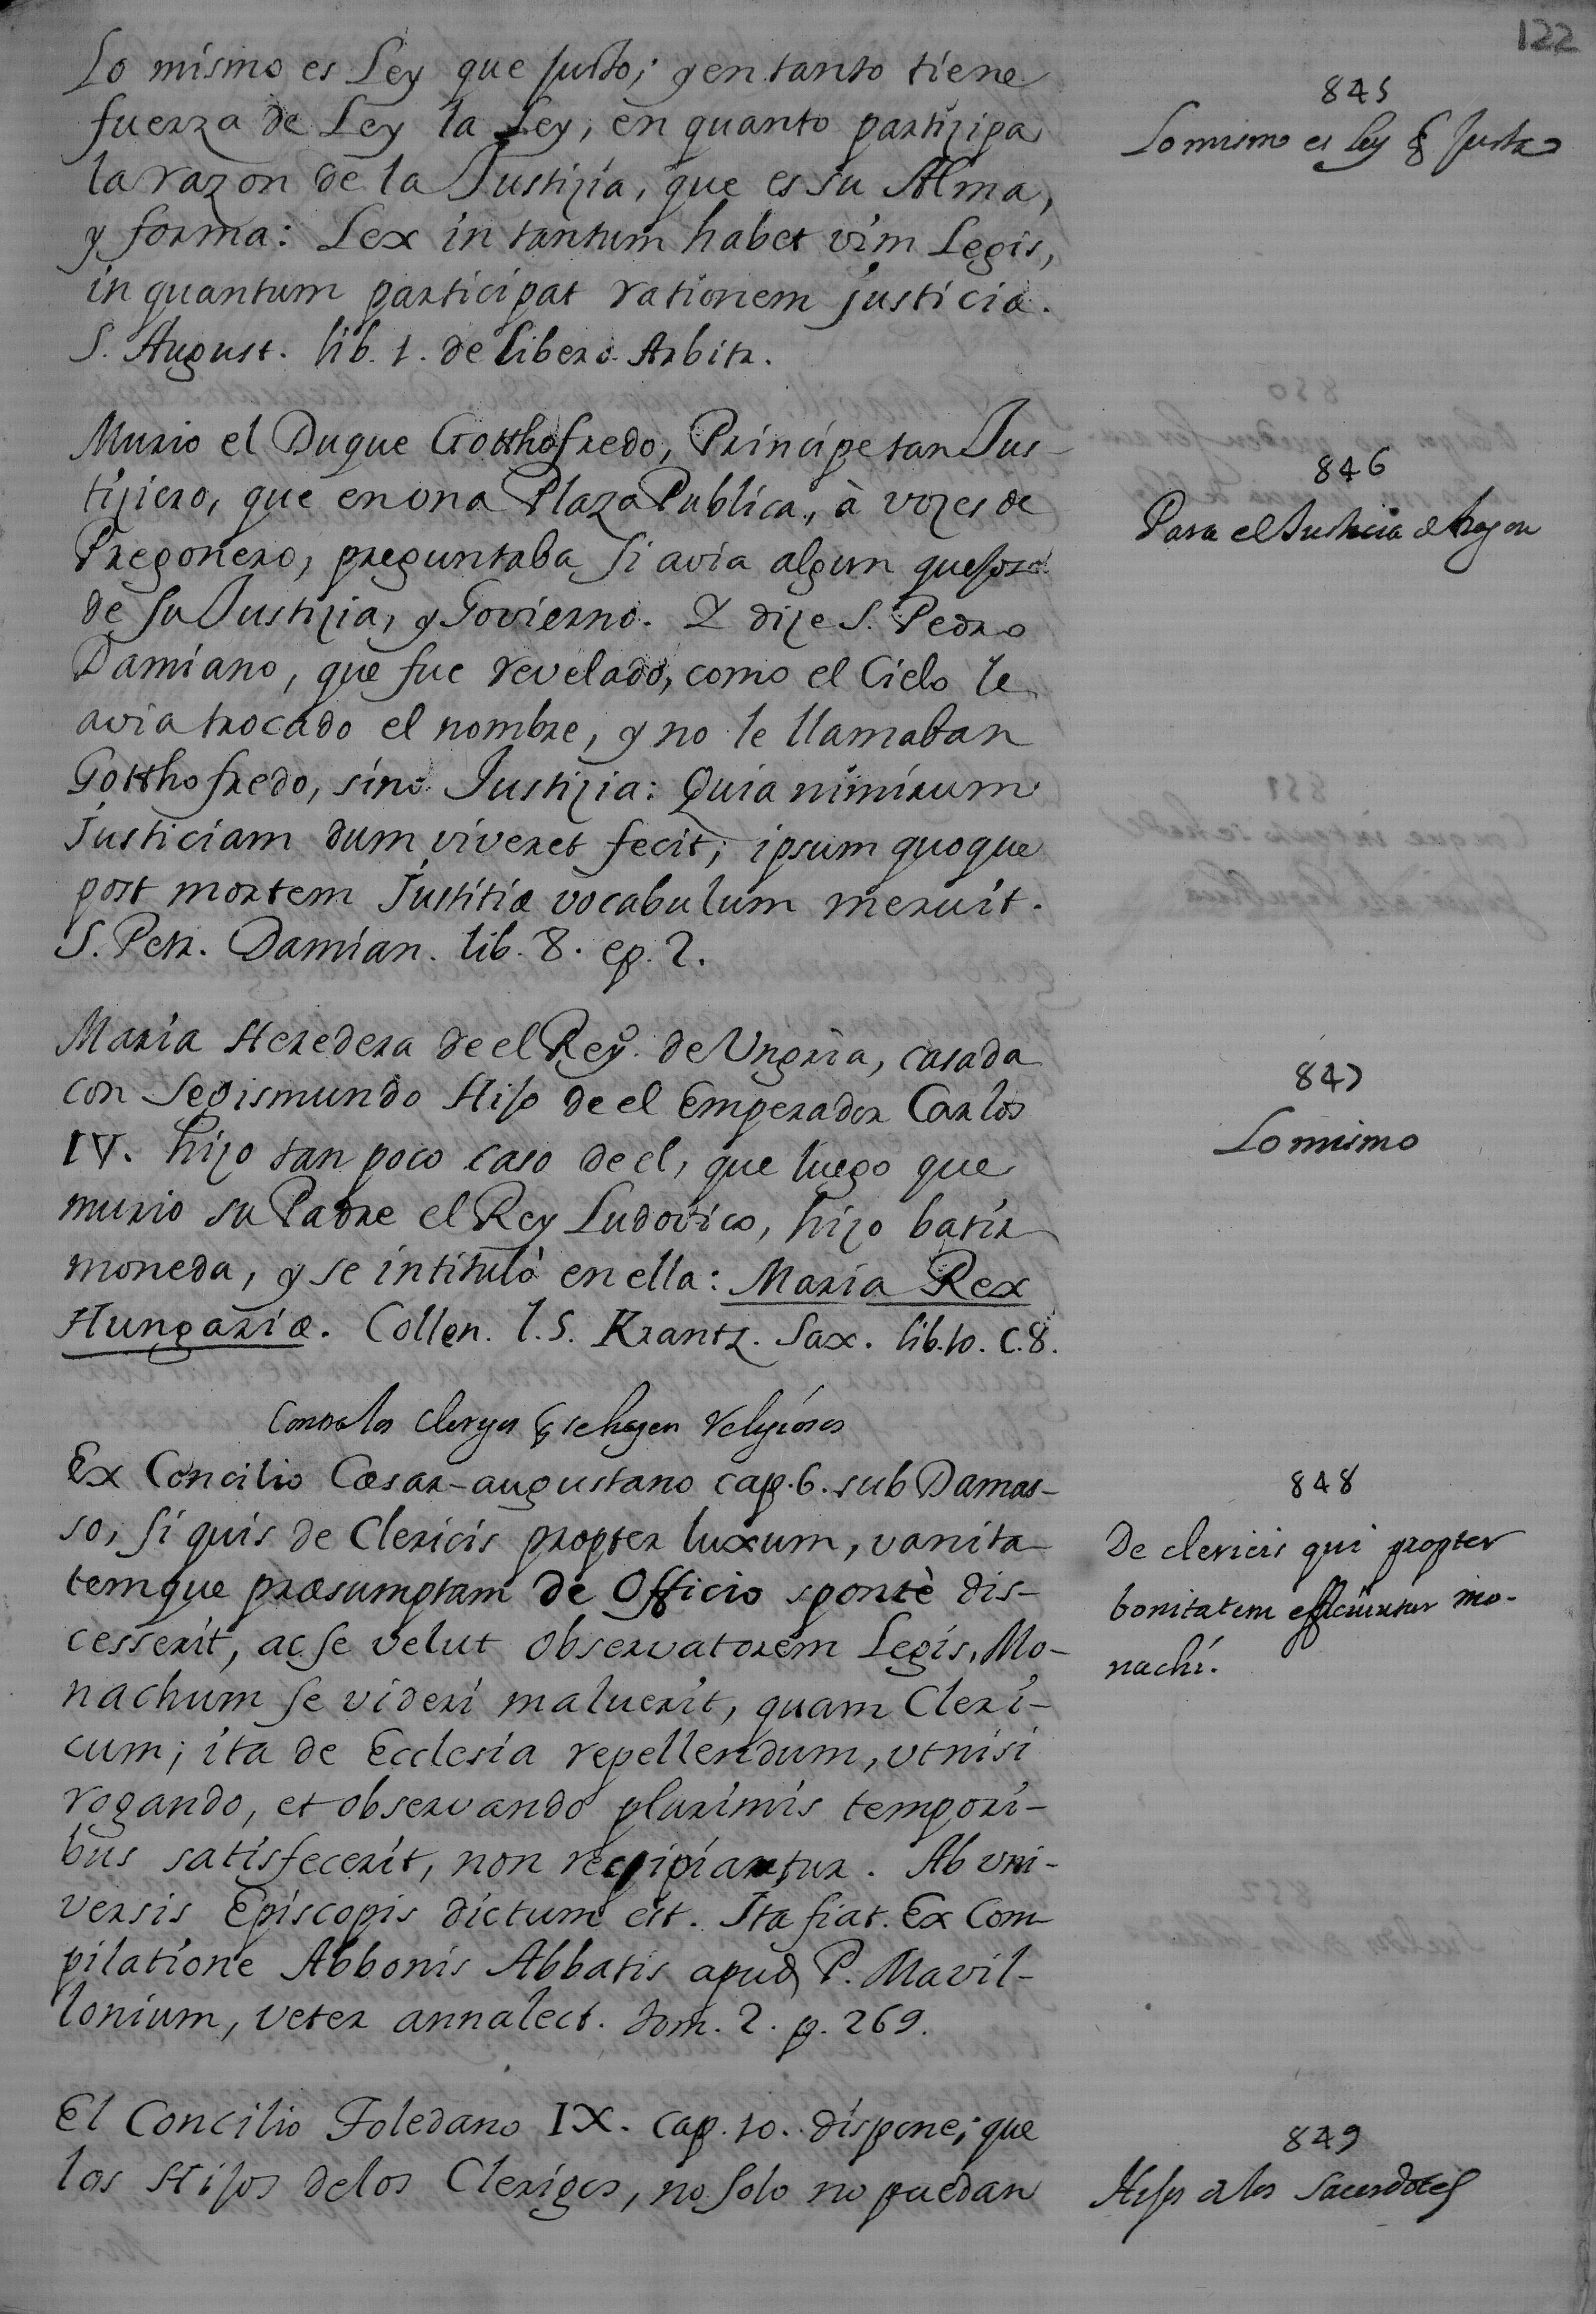 122
Lo mismo es Ley que justo; y en tanto tiene
fuerza de Ley la Ley, en quanto partizipa
la razon de la Justizia, que es su Alma,
y forma: Lex in tantum habet vim Legis,
in quantum participat rationem justiciæ.
S. August. lib. 1. de libero Arbitr.
845
Lo mismo es Ley q justo
Murio el Duque Gotthofredo, Principe tan Jus-
tiziero, que en una Plaza Publica, à vozes de
Pregonero, preguntaba si avia algun quejoso
de su Justizia, y Govierno. Y dize S. Pedro
Damiano, que fue revelado, como el Cielo le
avia trocado el nombre, y no le llamaban
Gotthofredo, sino Justizia: Quia nimirum
justiciam dum viveret fecit; ipsum quoque
post mortem justitiæ vocabulum meruit.
S. Petr. Damian. lib. 8. ep. 2.
846
Para el Justicia de Aragon
Maria Heredera de el Rey de Ungria, casada
con Segismundo Hijo de el Emperador Carlos
IV. hizo tan poco caso de el, que luego que
murio su Padre el Rey Ludovico, hizo batir
moneda, y se intitulò en ella: Maria Rex
Hungariæ. Collen. l. 5. Krantz. Sax. lib. 10. c. 8.
847
Lo mismo
Contra los clerigos q se hazen religiosos
Ex Concilio Cæsar-augustano cap. 6. sub Damas-
so, si quis de Clericis propter luxum, vanita-
temque præsumptam de Officio spontè dis-
cesserit, ac se velut observatorem Legis, Mo-
nachum se videri maluerit, quam Cleri-
cum; ita de Ecclesia repellendum, ut nisi
rogando, et observando plurimis tempori-
bus satisfecerit, non recipiantur. Ab uni-
versis Episcopis dictum est. Ita fiat. Ex Com-
pilatione Abbonis Abbatis apud P. Mavil-
lonium, veter annalect. tom. 2. p. 269.
848
De clericis qui propter
bonitatem efficiuntur mo-
nachi.
El Concilio Toledano IX. cap. 10. dispone; que
los Hijos de los Clerigos, no solo no puedan
849
Hijos de los Sacerdotes